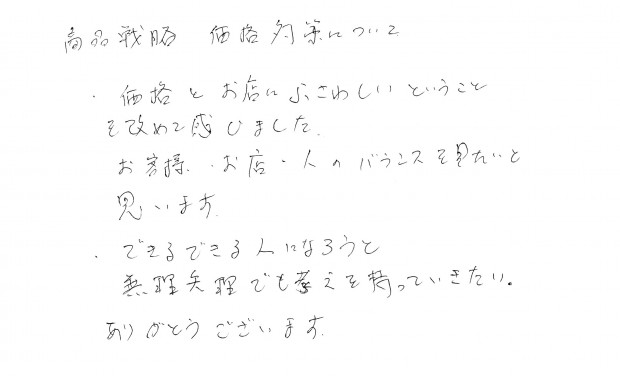 商品戦略 価格対策について
・価格とお店にふさわしいということ
を改めて感じました。
お客様・お店・人のバランスを見たいと
思います。
・できるできる人になろうと
無理矢理でも考えを持っていきたい。
ありがとうございます。